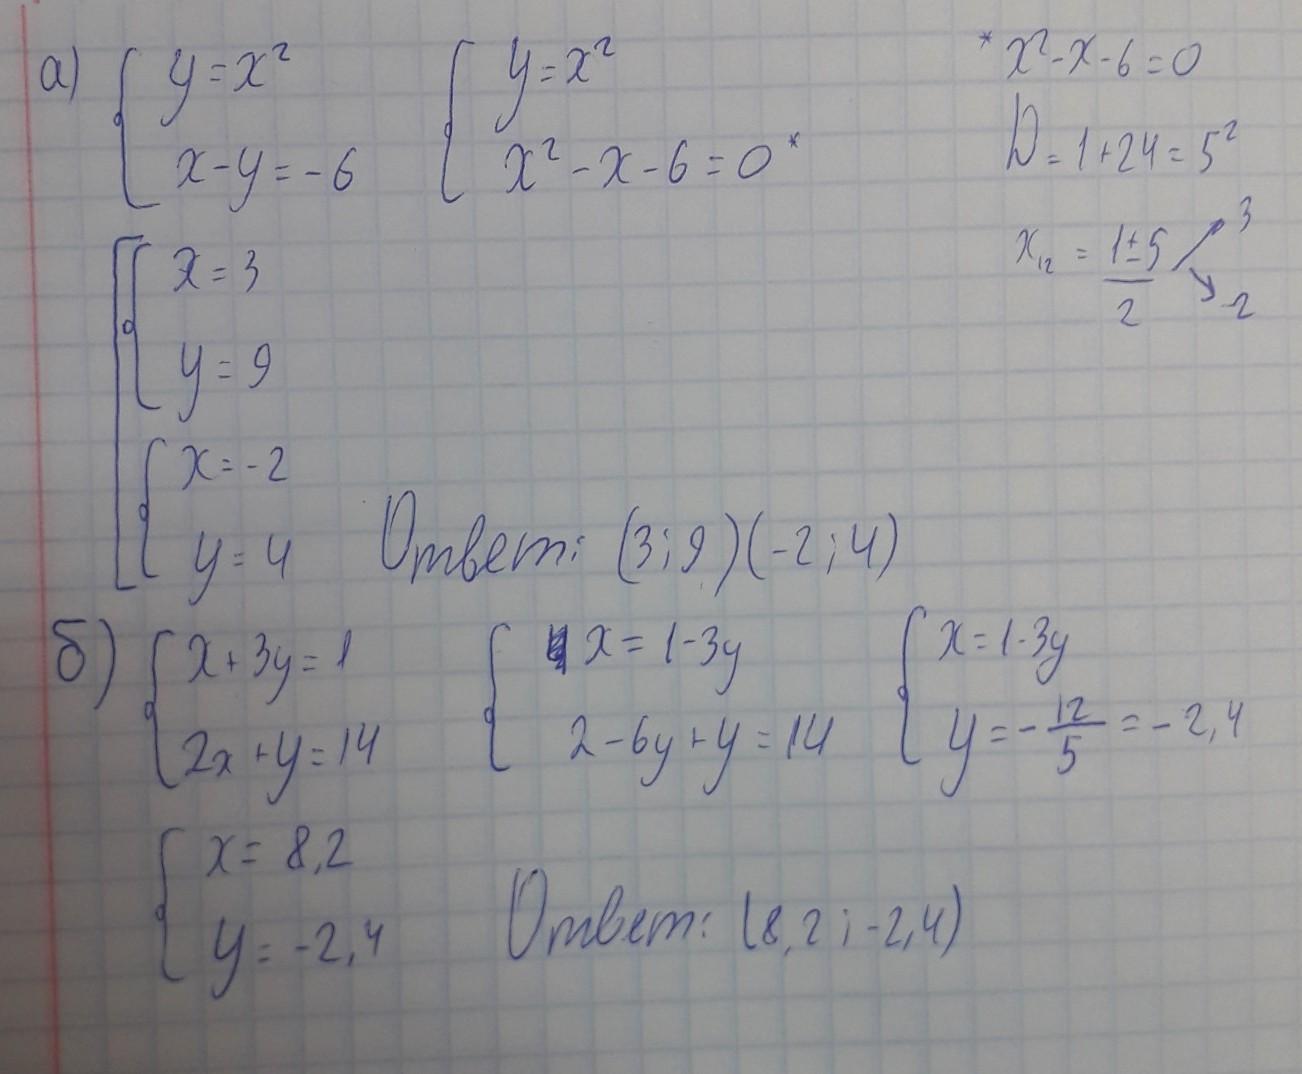 а) { y = x²   { y = x²
x - y = -6   x² - x - 6 = 0 *
* x² - x - 6 = 0
D = 1 + 24 = 5²
x₁₂ = (1 ± 5) / 2 ↗ 3 ↘ -2
[ { x = 3
y = 9
{ x = -2
y = 4   Ответ: (3; 9) (-2; 4)
б) { x + 3y = 1   { x = 1 - 3y   { x = 1 - 3y
2x + y = 14   2 - 6y + y = 14   y = - 12/5 = - 2,4
{ x = 8,2
y = -2,4   Ответ: (8,2; -2,4)